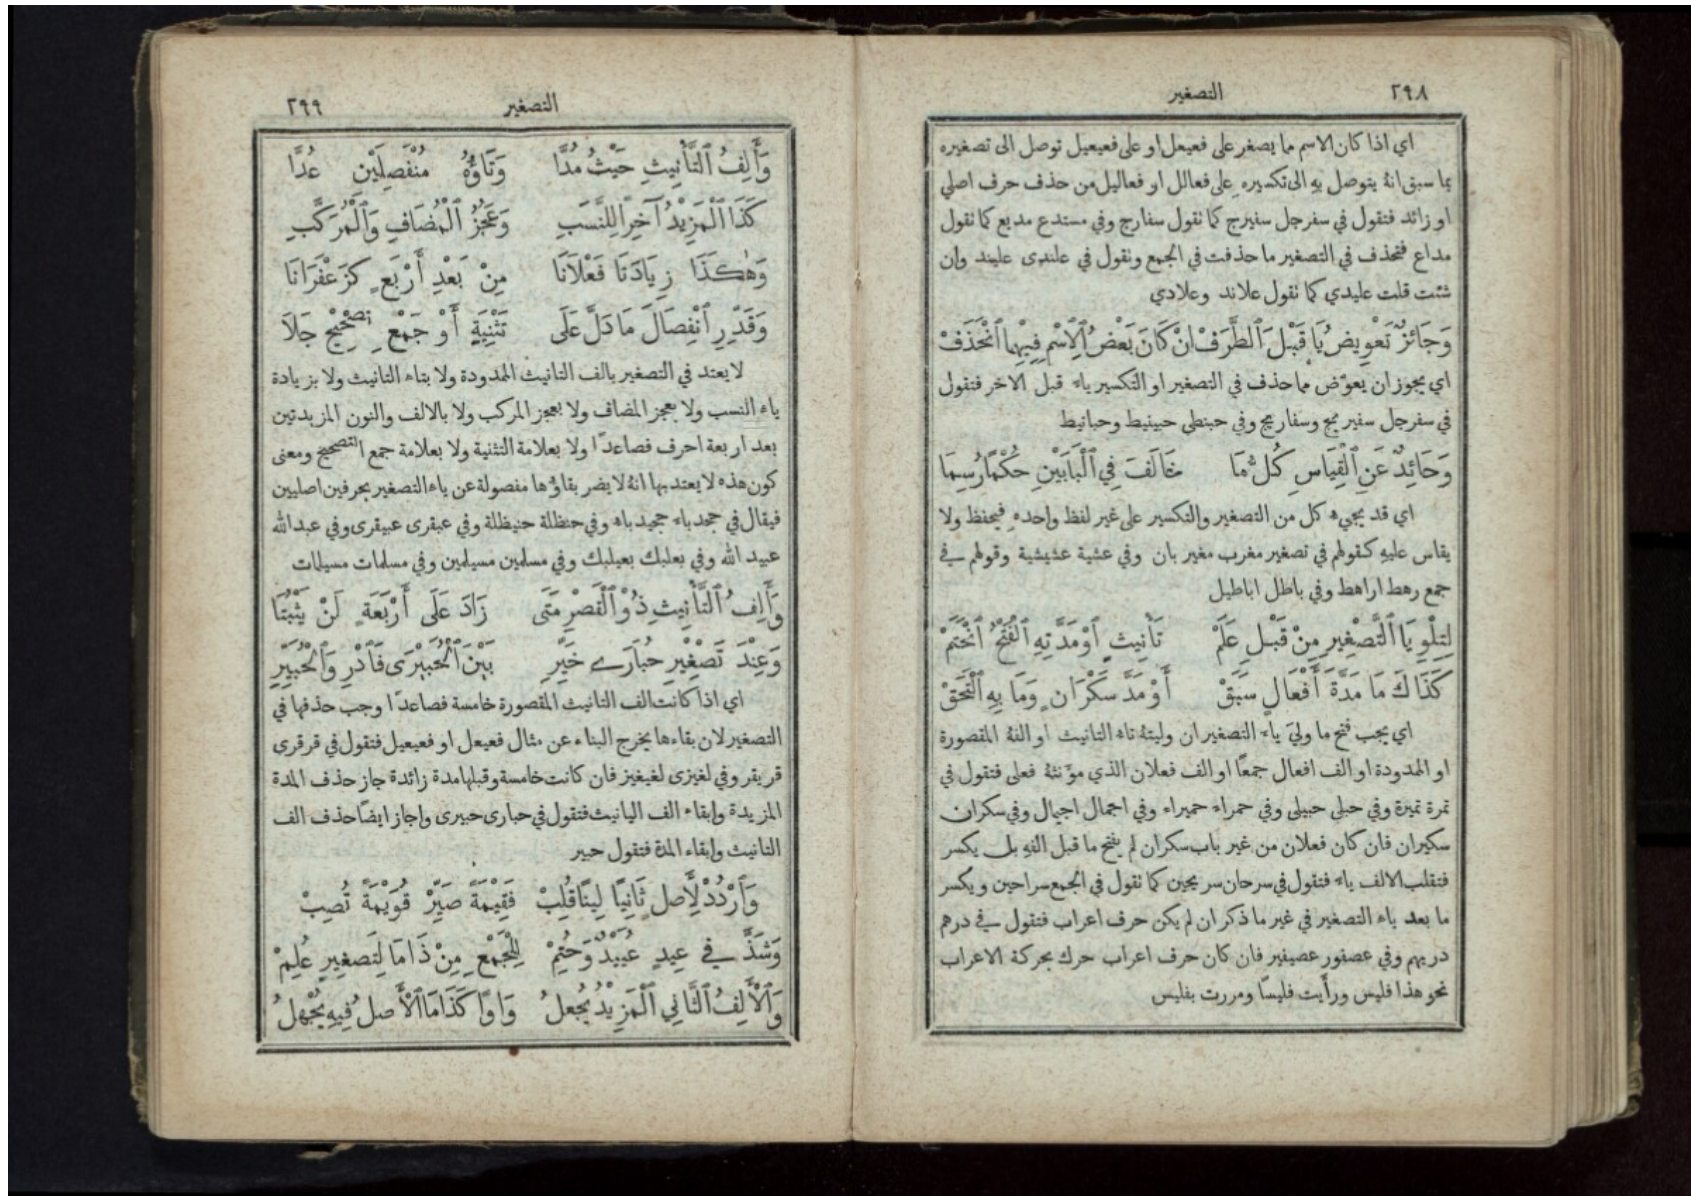 ٢٩٨ التصغير
اي اذا كان الاسم مما يصغر على فعيعل او على فعيعيل توصل الى تصغيره
بما سبق انهُ يتوصل بهِ الى تكسيره على فعالل او فعاليل من حذف حرف اصلي
او زائد فتقول في سفرجل سفيرج كما نقول سفارج وفي مستدع مديع كما نقول
مداع فتحذف في التصغير ما حذفت في الجمع ونقول في علندى عليند وان
شئت قلت عليدي كما نقول علاند وعلادي
وَجَائِزٌ تَعْوِيضُ يَا قَبْلَ ٱلطَّرَفْ إِنْ كَانَ بَعْضُ ٱلِٱسْمِ فِيهِمَا ٱنْحَذَفْ
اي يجوز ان يعوّض مما حذف في التصغير او التكسير ياء قبل الاخر فتقول
في سفرجل سفيريج وسفاريج وفي حبنطى حبينيط وحبانيط
وَحَائِدٌ عَنِ ٱلْقِيَاسِ كُلُّ مَا خَالَفَ فِي ٱلْبَابَيْنِ حُكْمًا رُسِمَا
اي قد يجيء كل من التصغير والتكسير على غير لفظ واحده فيحفظ ولا
يقاس عليهِ كقولهم في تصغير مغرب مغيربان وفي عشية عشيشية وقولهم في
جمع رهط اراهط وفي باطل اباطيل
لِتِلْوِ يَا ٱلتَّصْغِيرِ مِنْ قَبْلِ عَلَمْ تَأْنِيثٍ أَوْ مَدَّتِهِ ٱلْفَتْحُ ٱنْحَتَمْ
كَذَاكَ مَا مَدَّةَ أَفْعَالٍ سَبَقْ أَوْ مَدَّ سَكْرَانٍ وَمَا بِهِ ٱلْتَحَقْ
اي يجب فتح ما وليَ ياء التصغير ان وليتهُ تاء التانيث او الفهُ المقصورة
او الممدودة او الف افعال جمعًا او الف فعلان الذي مؤنثهُ فعلى فتقول في
تمرة تميرة وفي حبلى حبيلى وفي حمراء حميراء وفي اجمال اجيمال وفي سكران
سكيران فان كان فعلان من غير باب سكران لم يفتح ما قبل الفهِ بل يكسر
فتقلب الالف ياء فتقول في سرحان سريحين كما نقول في الجمع سراحين ويكسر
ما بعد ياء التصغير في غير ما ذكر ان لم يكن حرف اعراب فتقول في درهم
دريهم وفي عصفور عصيفير فان كان حرف اعراب حرك بحركة الاعراب
نحو هذا فليس ورأيت فليسًا ومررت بفليس
التصغير ٢٩٩
وَأَلِفُ ٱلتَّأْنِيثِ حَيْثُ مُدَّا وَتَاؤُهُ مُنْفَصِلَيْنِ عُدَّا
كَذَا ٱلْمَزِيدُ آخِرًا لِلنَّسَبِ وَعَجُزُ ٱلْمُضَافِ وَٱلْمُرَكَّبِ
وَهٰكَذَا زِيَادَتَا فَعْلَانَا مِنْ بَعْدِ أَرْبَعٍ كَزَعْفَرَانَا
وَقَدِّرِ ٱنْفِصَالَ مَا دَلَّ عَلَى تَثْنِيَةٍ أَوْ جَمْعِ تَصْحِيحٍ جَلَا
لا يعتد في التصغير بالف التانيث الممدودة ولا بتاء التانيث ولا بزيادة
ياء النسب ولا بعجز المضاف ولا بعجز المركب ولا بالالف والنون المزيدتين
بعد اربعة احرف فصاعدًا ولا بعلامة التثنية ولا بعلامة جمع التصحيح ومعنى
كون هذه لا يعتد بها انهُ لا يضر بقاؤها مفصولة عن ياء التصغير بحرفين اصليين
فيقال في جحدباء جحيدباء وفي حنظلة حنيظلة وفي عبقرى عبيقرى وفي عبد الله
عبيد الله وفي بعلبك بعيلبك وفي مسلمين مسيلمين وفي مسلمات مسيلمات
وَأَلِفُ ٱلتَّأْنِيثِ ذُو ٱلْقَصْرِ مَتَى زَادَ عَلَى أَرْبَعَةٍ لَنْ يَثْبُتَا
وَعِنْدَ تَصْغِيرِ حُبَارَى خَيِّرِ بَيْنَ ٱلْحُبَيْرَى فَٱدْرِ وَٱلْحُبَيِّرِ
اي اذا كانت الف التانيث المقصورة خامسة فصاعدًا وجب حذفها في
التصغير لان بقاءها يخرج البناء عن مثال فعيعل او فعيعيل فتقول في قرقرى
قريقر وفي لغيزى لغيغيز فان كانت خامسة وقبلها مدة زائدة جاز حذف المدة
المزيدة وابقاء الف اليانيث فتقول في حبارى حبيرى واجاز ايضًا حذف الف
التانيث وابقاء المدة فتقول حبير
وَٱرْدُدْ لِأَصْلٍ ثَانِيًا لِينًا قُلِبْ فَقِيمَةً صَيِّرْ قُوَيْمَةً تُصِبْ
وَشَذَّ فِي عِيدٍ عُيَيْدٌ وَحُتِمْ لِلْجَمْعِ مِنْ ذَا مَا لِتَصْغِيرٍ عُلِمْ
وَٱلْأَلِفُ ٱلثَّانِي ٱلْمَزِيدُ يُجْعَلُ وَاوًا كَذَا مَا ٱلْأَصْلُ فِيهِ يُجْهَلُ